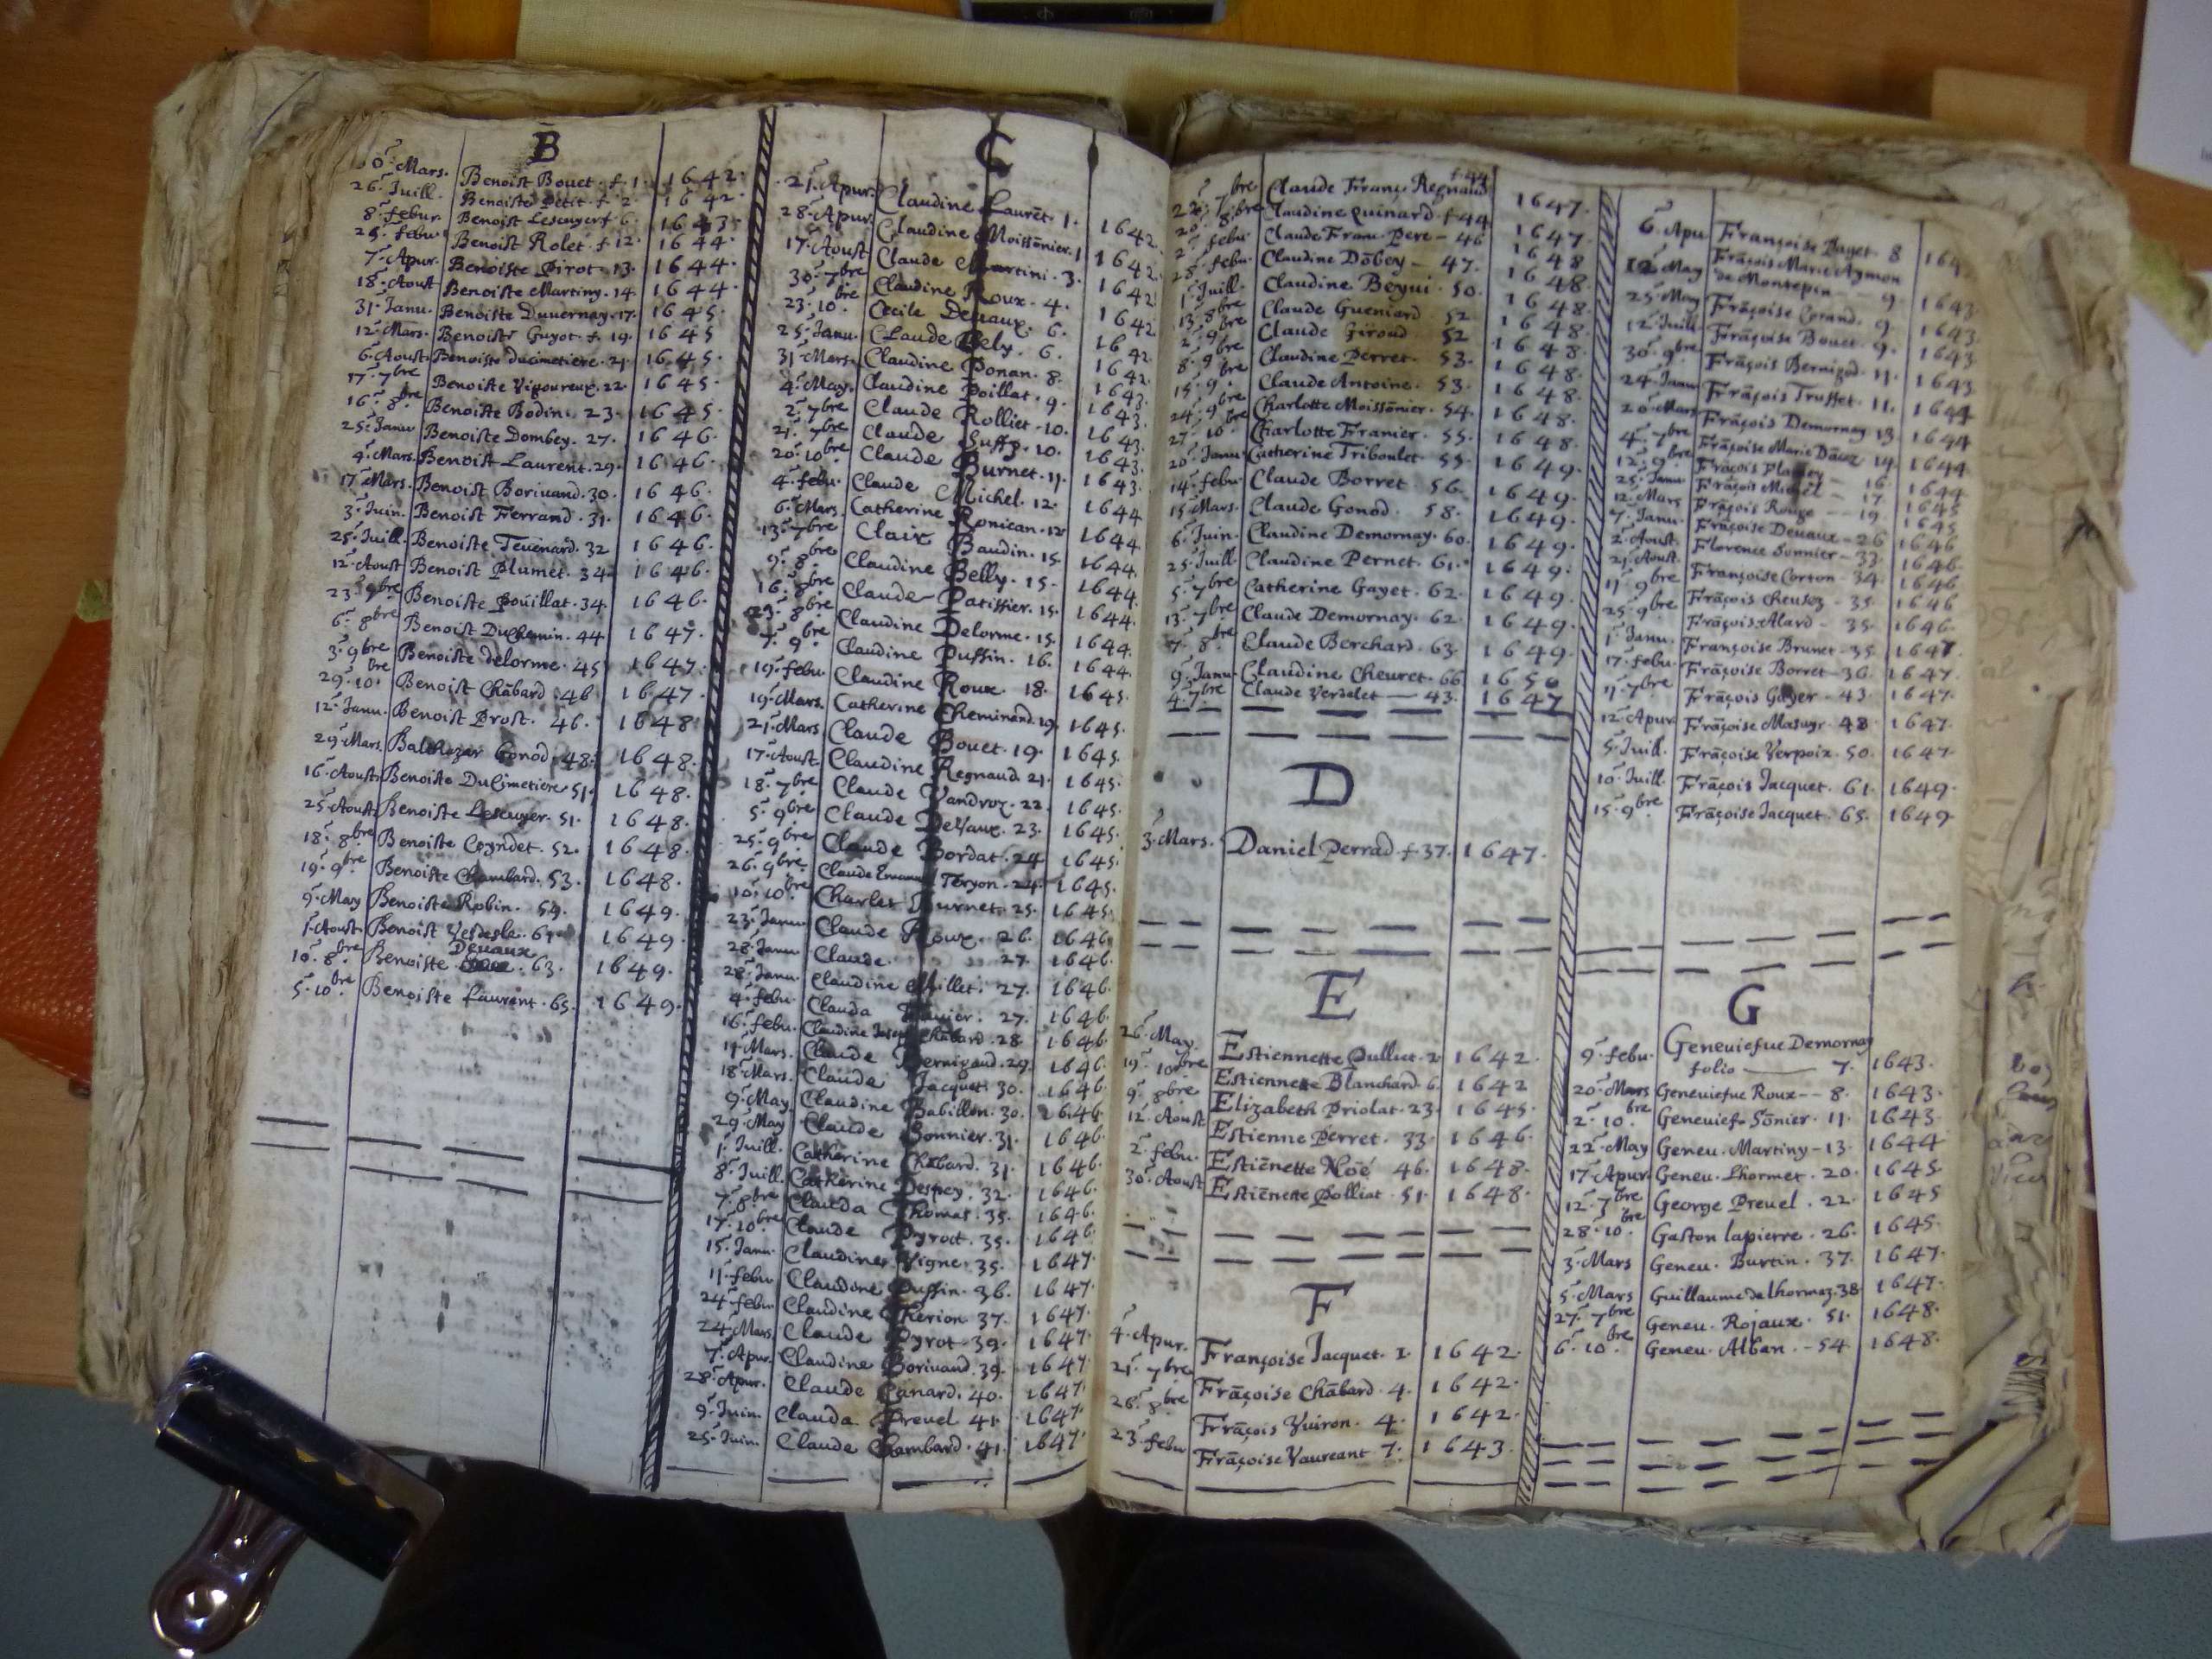 B
Mars. Benoist Bouet. f. 1. 1642.
26. Juill. Benoiste Petit. f. 2. 1642
8. febur. Benoist Lescuyer f. 6. 1643.
29. febu. Benoist Rolet. f. 12. 1644.
7. Apur. Benoiste Pirot. 13. 1644.
18. Aoust Benoiste Martiny. 14 1644.
31. Janu. Benoiste Duuernay. 17. 1645.
12. Mars. Benoiste Guyot. f. 19. 1645
6. Aoust. Benoiste ducimetiere. 21. 1645.
17. 7bre Benoiste Vigoureux. 22. 1645.
16. 8bre Benoiste Bodin. 23. 1645.
25. Janu Benoiste Dombey. 27. 1646.
4. Mars. Benoist Laurent. 29. 1646.
17. Mars. Benoist Boriuand. 30. 1646.
3. Juin. Benoist Ferrand. 31. 1646.
25. Juill. Benoiste Teuenard. 32 1646.
12. Aoust Benoist Plumet. 34. 1646.
23. 9bre Benoiste Pouillat. 34. 1646.
6. 8bre Benoist DuChemin. 44 1647.
3. 9bre Benoiste delorme. 45 1647.
29. 10bre Benoist Chābard. 46 1647
12. Janu. Benoist Prost. 46. 1648
29. Mars. Balthazar Gonod. 48. 1648.
16. Aoust Benoiste DuCimetiere 51. 1648.
25. Aoust Benoiste Lescuyer. 51. 1648.
18. 8bre Benoiste Coyndet. 52. 1648.
19. 9bre Benoiste Chambard. 53. 1648.
9. May Benoiste Robin. 59. 1649.
1. Aoust Benoist 1649
10. 8bre Benoiste Deuaux. 63. 1649.
5. 10bre Benoiste Laurent. 65. 1649.
C
21. Apur. Claudine Laurēt. 1. 1642
28. Apur. Claudine Moissōnier. 1 1642.
17. Aoust Claude Martini. 3. 1642
30. 7bre Claudine Roux. 4. 1642
23. 10bre Cecile Deuaux. 6. 1642.
25. Janu. Claude Bely. 6.
31. Mars. Claudine Ponan. 8. 1643.
4. May. Claudine Poillat. 9. 1643.
2. 7bre Claude Rolliet. 10. 1643.
21. 7bre Claude 10. 1643.
20. 10bre Claude Burnet. 11. 1643.
4. febu. Claude Michel. 12. 1644
6. Mars. Catherine Ronican. 12 1644.
13. 7bre Clair Baudin. 15. 1644.
9. 8bre Claudine Belly. 15. 1644.
16. 8bre Claude Patissier. 15. 1644.
23. 8bre Claudine Delorme. 15. 1644.
7. 9bre Claudine Puffin. 16. 1644.
19. febu Claudine Roux. 18. 1645.
19. Mars. Catherine Cheminand. 19. 1645.
21. Mars Claude Bouet. 19. 1645.
17. Aoust Claudine Regnaud. 21. 1645.
18. 7bre Claude Vandroz. 22. 1645.
5. 9bre Claude DeVaux. 23. 1645.
25. 9bre Claude Bordat. 24 1645.
26. 9bre Claude Emanuel Teryon. 24. 1645.
10. 10bre Charles Burnet. 25. 1645.
23. Janu. Claude Roux. 26. 1646
28. Janu. Claude 27. 1646.
28. Janu. Claudine Millet. 27. 1646.
4. febu. Clauda 27. 1646.
16. febu. Claudine Joseph Chābard. 28 1646
11. Mars. Claude Bernigaud. 29. 1646.
18. Mars. Claude Jacquet. 30. 1646.
9. May. Claudine Babillon. 30. 1646.
29. May Claude Bonnier. 31. 1646.
1. Juill. Catherine Chābard. 31. 1646.
8. Juill. Catherine Despey. 32. 1646.
7. 8bre Clauda Thomas. 35. 1646.
17. 10bre Claude Pyrot. 35. 1646
15. Janu. Claudine Vigne. 35. 1647
11. febu Claudine Puffin. 36. 1647.
24. febu. Claudine Therion. 37. 1647.
24. Mars. Claude Pyrot. 39. 1647.
7. Apur. Claudine Boriuand. 39. 1647
28. Apur. Claude Canard. 40. 1647
9. Juin. Clauda Preuel 41. 1647.
25. Juin. Claude Chambard. 41. 1647
22. 7bre Claude Franç. Regnaud f. 44 1647.
20. 8bre Claudine Quinard. f 44 1647.
2. febu Claude Franc. Pere - 46 1648
28. febu. Claudine Dōbey - 47. 1648.
1. Juill. Claudine Beyui. 50. 1648.
13. 8bre Claude Gueniard. 52 1648.
2. 9bre Claude Giroud 52 1648.
8. 9bre Claudine Perret. 53. 1648.
15. 9bre Claude Antoine. 53. 1648.
24. 9bre Charlotte Moissōnier. 54. 1648.
27. 10bre Charlotte Franier. 55. 1648.
20. Janu Catherine Triboulet. 55. 1649.
14. febu Claude Borret. 56. 1649.
15. Mars. Claude Gonod. 58. 1649.
6. Juin. Claudine Demornay. 60. 1649.
25. Juill. Claudine Pernet. 61. 1649.
5. 7bre Catherine Gayet. 62. 1649.
13. 7bre Claude Demornay. 62. 1649.
7. 8bre Claude Berchard. 63. 1649.
9. Janu Claudine Cheuret. 66 1650
4. 7bre Claude Verdelet — 43. 1647
D
3. Mars. Daniel Perrad. f. 37. 1647.
E
26. May. Estiennette Pulliet. 2. 1642.
19. 10bre Estiennette Blanchard. 6. 1642
9. 8bre Elizabeth Priolat. 23. 1645.
12. Aoust Estienne Perret. 33. 1646.
2. febu. Estiēnette Noé 46. 1648.
30. Aoust Estiēnette Polliat. 51. 1648.
F
4. Apur. Françoise Jacquet. 1. 1642.
21. 7bre Frāçoise Chābard. 4. 1642.
26. 8bre Frāçois Yuiron. 4. 1642.
23. febu Frāçoise Vaureant 7. 1643.
6. Apu Françoise Paget. 8
12. May Frāçois Marie Aymon
de Montepin — 9. 1643.
25. May Frāçoise Corand. 9. 1643.
12. Juill Frāçoise Bouet. 9. 1643
30. 9bre Frāçois Bernigod. 11. 1643
24. Janu Frāçois Truffet. 11. 1644
20. Mars Frāçois Demornay 13. 1644
4. 7bre Frāçoise Marie 14. 1644.
12. 9bre Frāçois 16. 1644
25. Janu Frāçois Michel - 17. 1645
12. Mars Frāçois Rouge — 19. 1645
7. Janu. Frāçoise Deuaux - 26 1646
2. Aoust. Florence Sonnier - 33. 1646.
21. Aoust. Françoise Corton - 34. 1646
11. 9bre Frāçois Cheuroz - 35. 1646
25. 9bre Frāçois Alard - 35. 1646.
1. Janu. Françoise Brunet - 35. 1647
17. febu. Frāçoise Borret - 36. 1647.
11. 7bre Frāçois Goyer - 43. 1647.
12. Apur Frāçoise Masuyr. 48. 1647.
5. Juill. Frāçoise Verpoix. 50. 1647
10. Juill. Frāçois Jacquet. 61. 1649.
15. 9bre Frāçoise Jacquet. 65. 1649
G
9. febu. Geneuiefue Demornay
folio — 7. 1643.
20. Mars Geneuiefue Roux -- 8. 1643.
2. 10bre Geneuief. Sōnier. 11. 1643.
22. May Geneu. Martiny - 13. 1644
17. Apur. Geneu. Lhormet. 20. 1645.
12. 7bre George Preuel. 22. 1645
28. 10bre Gaston lapierre. 26. 1645.
3. Mars Geneu. Burtin. 37. 1647.
5. Mars Guillaume de lhormaz. 38. 1647.
27. 7bre Geneu. Rojaux. 51. 1648.
6. 10bre Geneu. Alban. - 54. 1648.